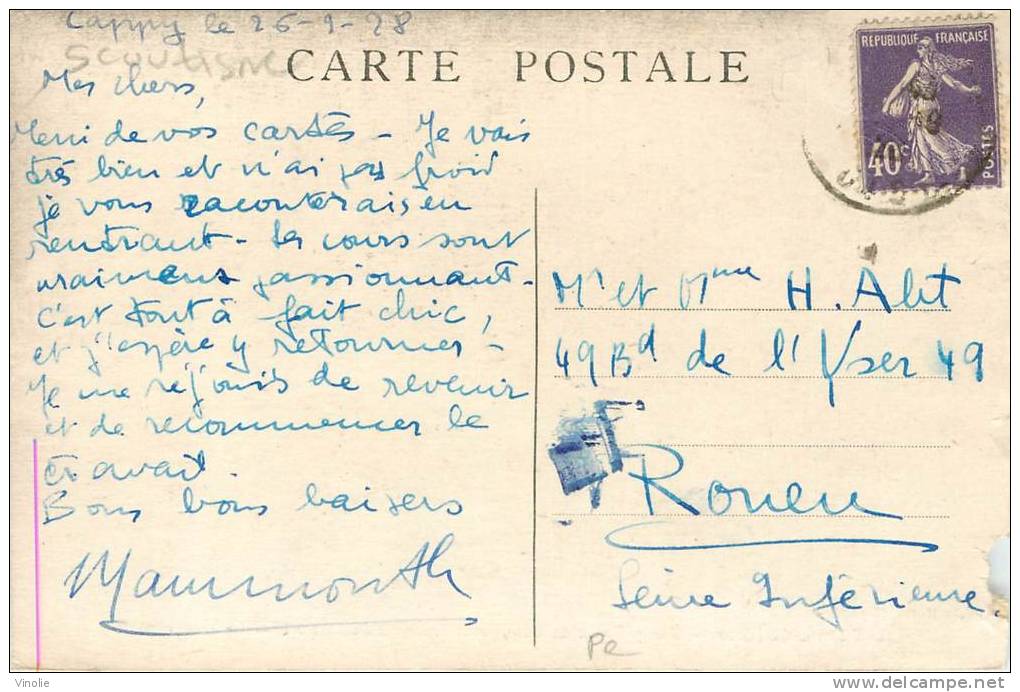 Cappy le 26-9-28
SCOUTISME
CARTE POSTALE
REPUBLIQUE FRANÇAISE
40c
POSTES
Mes chers,
Merci de vos cartes - Je vais
très bien et n'ai pas froid
je vous raconterais en
rentrant - Les cours sont
vraiment passionnant -
c'est tout à fait chic,
et j'espère y retourner -
Je me réjouis de revenir
et de recommencer le
travail.
Bons bons baisers
Mammouth
Mr et Mme H. Alit
49 Bd de l'Yser 49
Rouen
Seine Inférieure.
Pc
Vinolie
www.delcampe.net